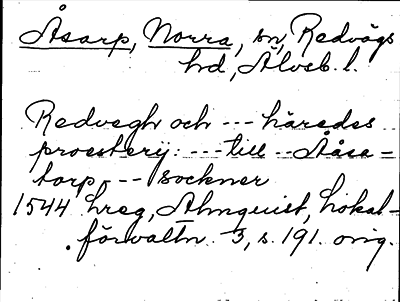 Åsarp, Norra, sn, Redvägs
hd, Älvsb. l.
Redvegh och --- häredes
proesterij: --- till -- Ååsa-
torp, -- sockner
1544 hreg, Almquist, Lokal-
förvaltn. 3, s. 191. orig.